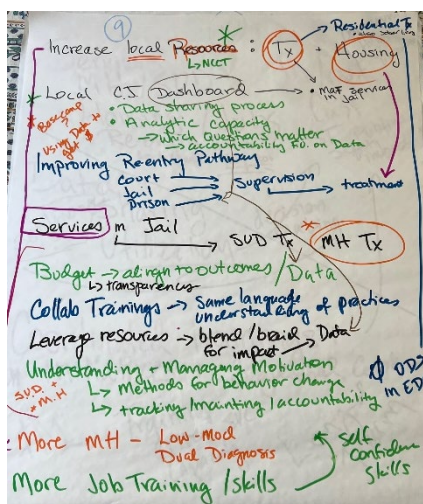 9
Residential Tx
Increase local Resources : Tx + Housing
↳ NCCT
Local CJ Dashboard → • MAT services
in Jail
• Data sharing process
• Analytic capacity
→ which questions matter
→ accountability f.u. on Data
Basecamp
Using Data to
get $
Improving Re-entry Pathway
Court
Jail → Supervision → treatment
prison
Services in Jail
→ SUD Tx * MH Tx
Budget → align to outcomes / Data
↳ transparency
Collab Trainings → Same language
understanding of practices
Leverage resources → blend / braid → Data
for impact
Understanding + Managing Motivation
↳ Methods for behavior change
↳ tracking/mainting/accountability
SUD +
M.H
Ø ODs
in ED
More MH - Low-Mod
Dual Diagnosis
More Job Training / skills
self
confidence
skills